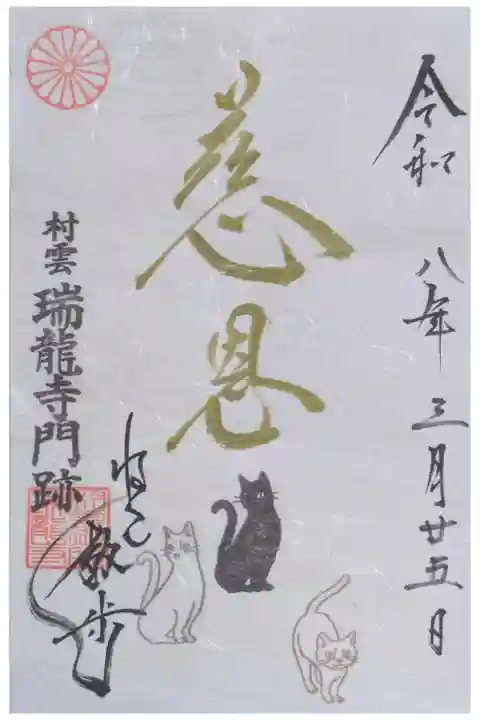 令和八年三月廿五日
慈恩
村雲瑞龍寺門跡
ねこ散歩